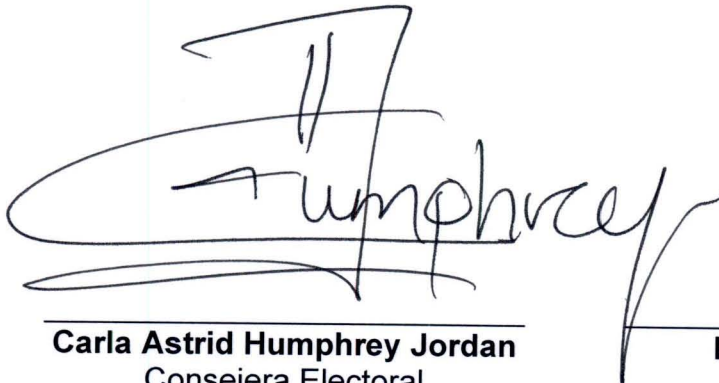 Humphrey
Carla Astrid Humphrey Jordan
Consejera Electoral